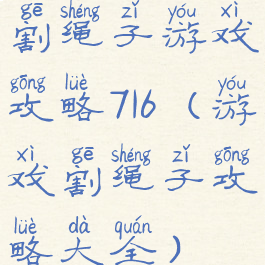 gē shéng zǐ yóu xì
割绳子游戏
gōng lüè yóu
攻略716（游
xì gē shéng zǐ gōng
戏割绳子攻
lüè dà quán
略大全）